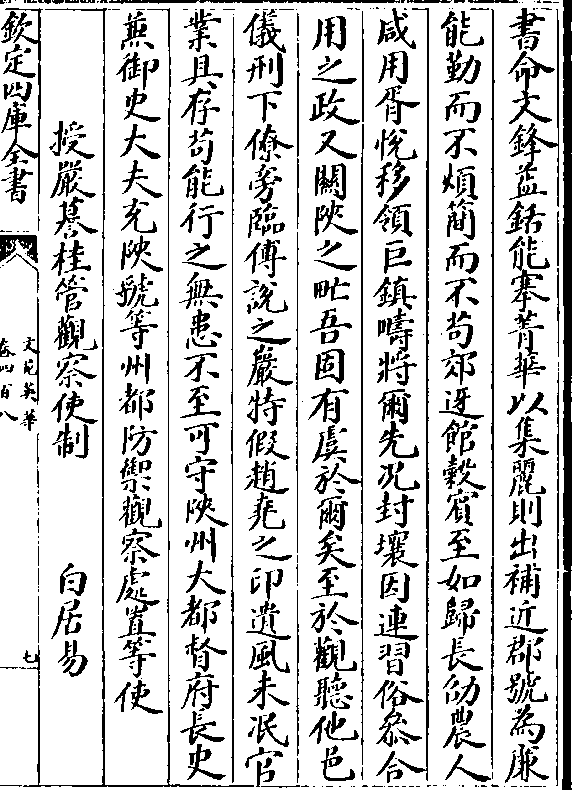 書命文鋒益銛能搴菁華以集麗則出補近郡號為㢘
能勤而不煩簡而不苟郊迓館穀賓至如歸長幼農人
咸用胥悅移領巨鎮疇將爾先况封壤因連習俗叅合
用之政又闗陝之甿吾固有虞於爾矣至於觀聽他邑
儀刑下僚旁臨傅說之嚴特假趙堯之印遺風未泯官
業具存茍能行之無患不至可守陝州大都督府長史
兼御史大夫充陝虢等州都防禦觀察處置等使
授嚴謩桂管觀察使制 白居易
欽定四庫全書
文苑英華
卷四百八
七